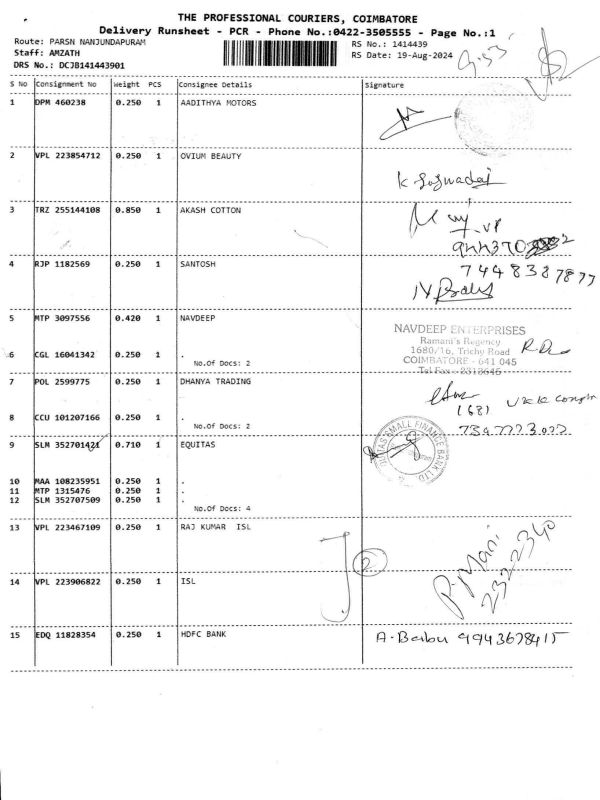 THE PROFESSIONAL COURIERS, COIMBATORE
Delivery Runsheet - PCR - Phone No.:0422-3505555 - Page No.:1
Route: PARSN NANJUNDAPURAM
RS No.: 1414439
Staff: AMZATH
RS Date: 19-Aug-2024
DRS No.: DCJB141443901
S No Consignment No Weight PCS Consignee Details Signature
1 DPM 460238 0.250 1 AADITHYA MOTORS
2 VPL 223854712 0.250 1 OVIUM BEAUTY
3 TRZ 255144108 0.850 1 AKASH COTTON
4 RJP 1182569 0.250 1 SANTOSH
7448327877
5 MTP 3097556 0.420 1 NAVDEEP
NAVDEEP ENTERPRISES
Ramani's Regency
1680/16, Trichy Road
COIMBATORE - 641 045
Tel Fax - 2313645
6 CGL 16041342 0.250 1 .
No.Of Docs: 2
7 POL 2599775 0.250 1 DHANYA TRADING
8 CCU 101207166 0.250 1 .
No.Of Docs: 2
9 SLM 352701421 0.710 1 EQUITAS
EQUITAS SMALL FINANCE BANK LTD
10 MAA 108235951 0.250 1 .
11 MTP 1315476 0.250 1 .
12 SLM 352707509 0.250 1 .
No.Of Docs: 4
13 VPL 223467109 0.250 1 RAJ KUMAR ISL
2
P. Mani
2322340
14 VPL 223906822 0.250 1 ISL
15 EDQ 11828354 0.250 1 HDFC BANK
A. Babu 9943678415